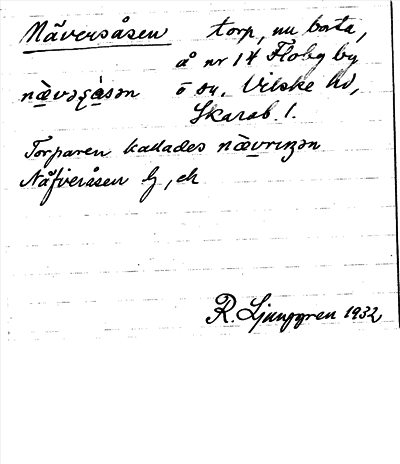 Näversåsen torp, nu borta,
å nr 14 Floby by
nævəʂåsən ö sn. Vilske hd,
Skarab. l.
Torparen kallades nævrɩŋən
Näfveråsen
R. Ljunggren 1932